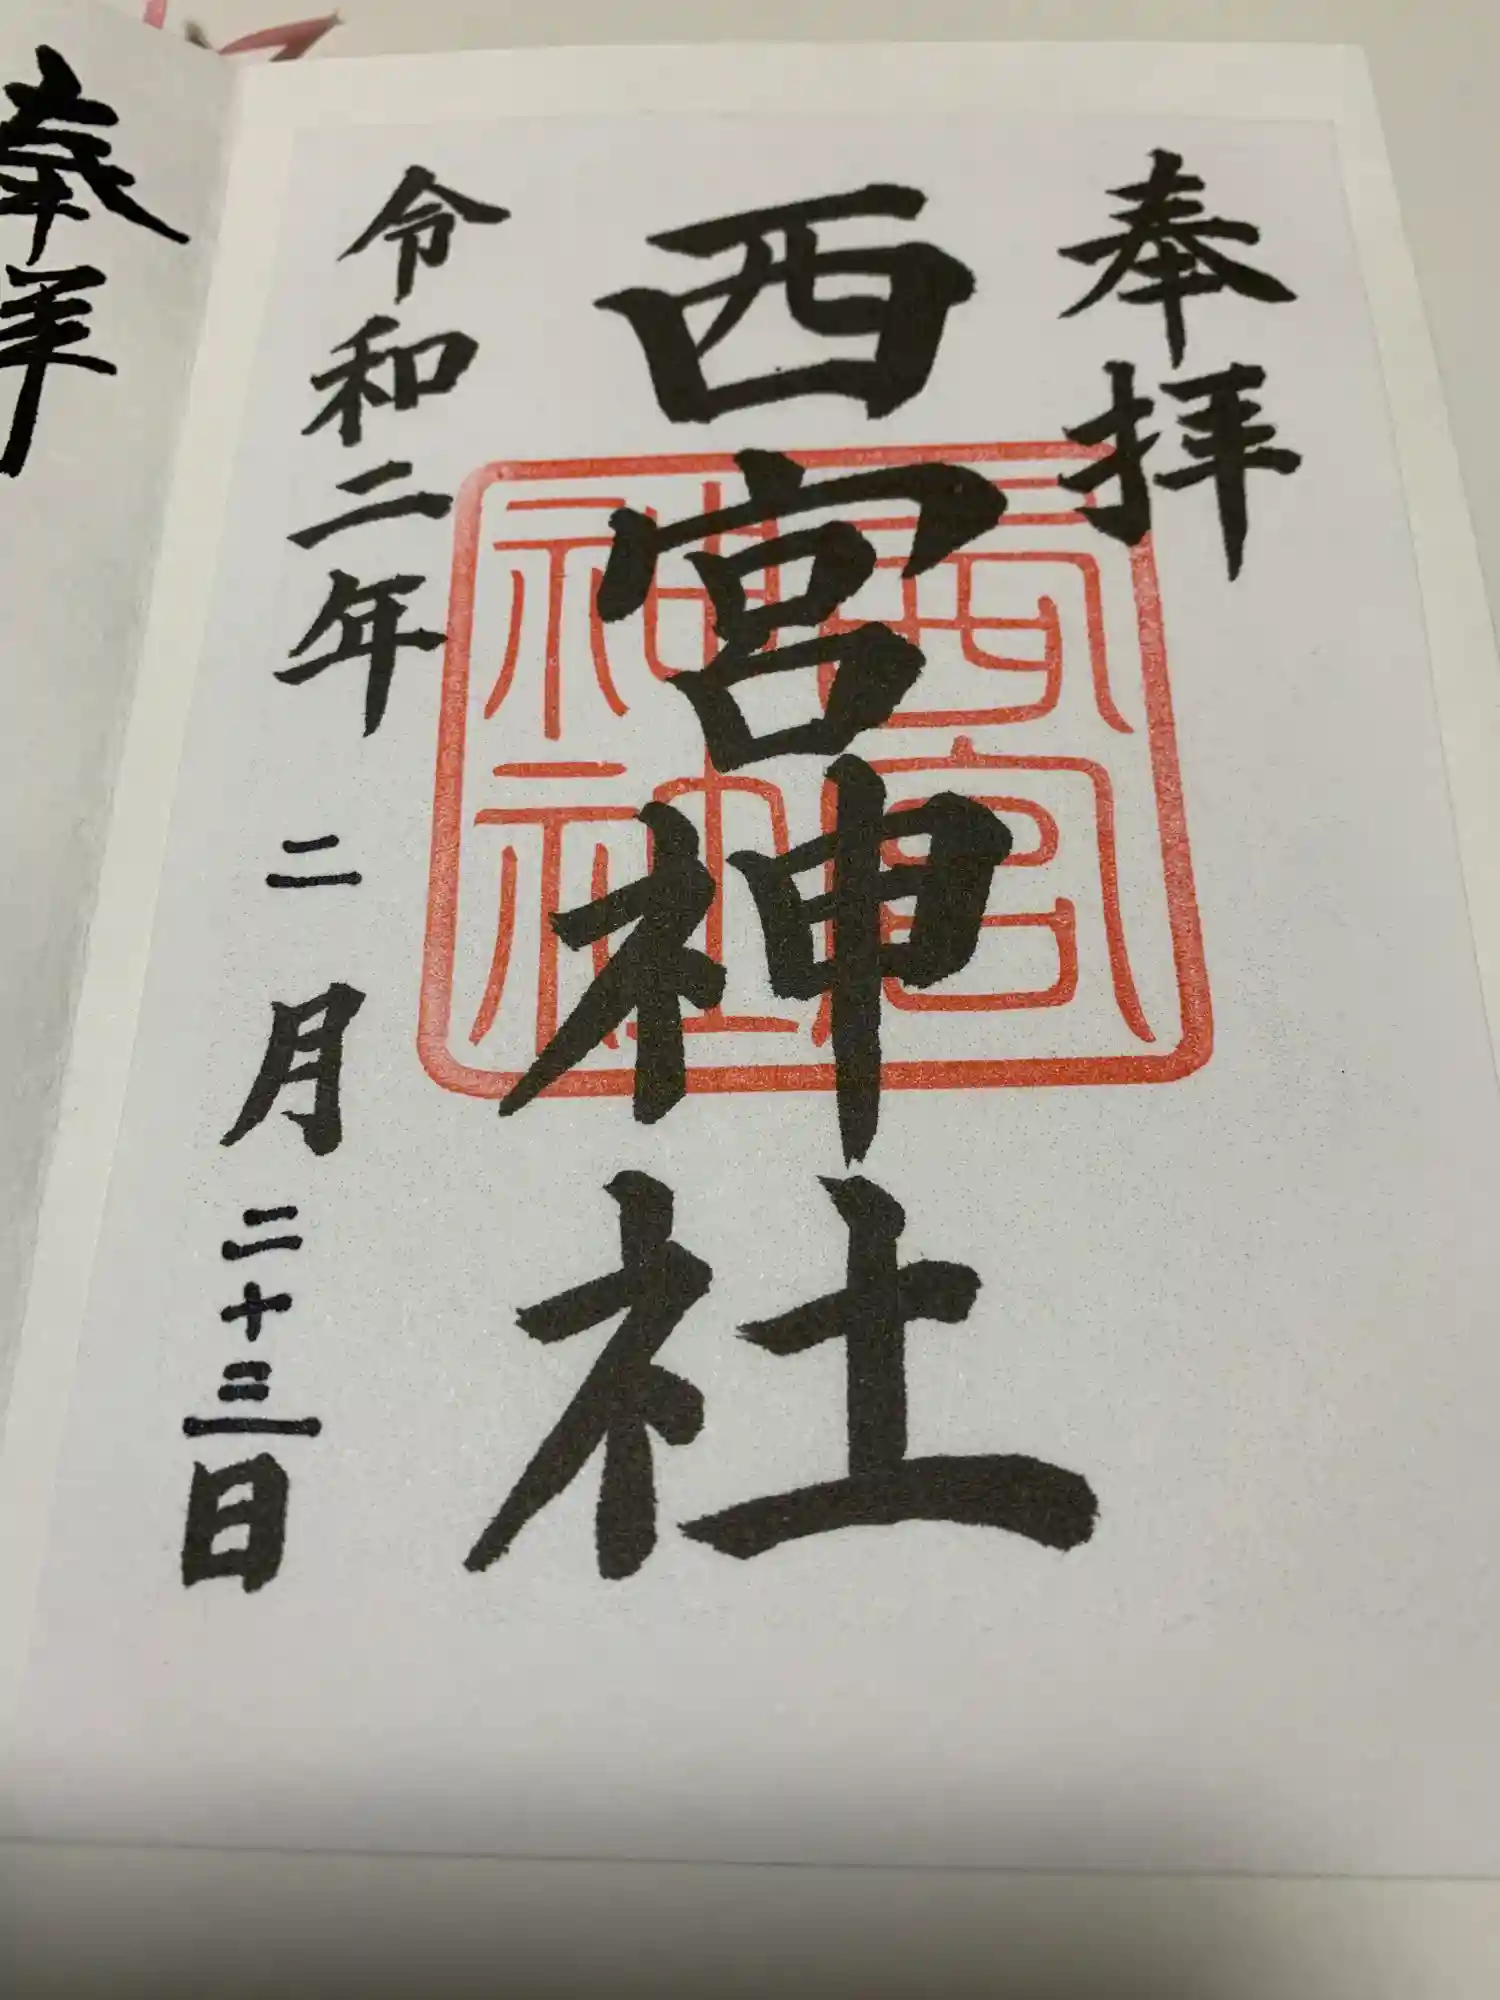 奉拝
西宮神社
西宮
神社
令和二年 二月 二十三日
奉拝